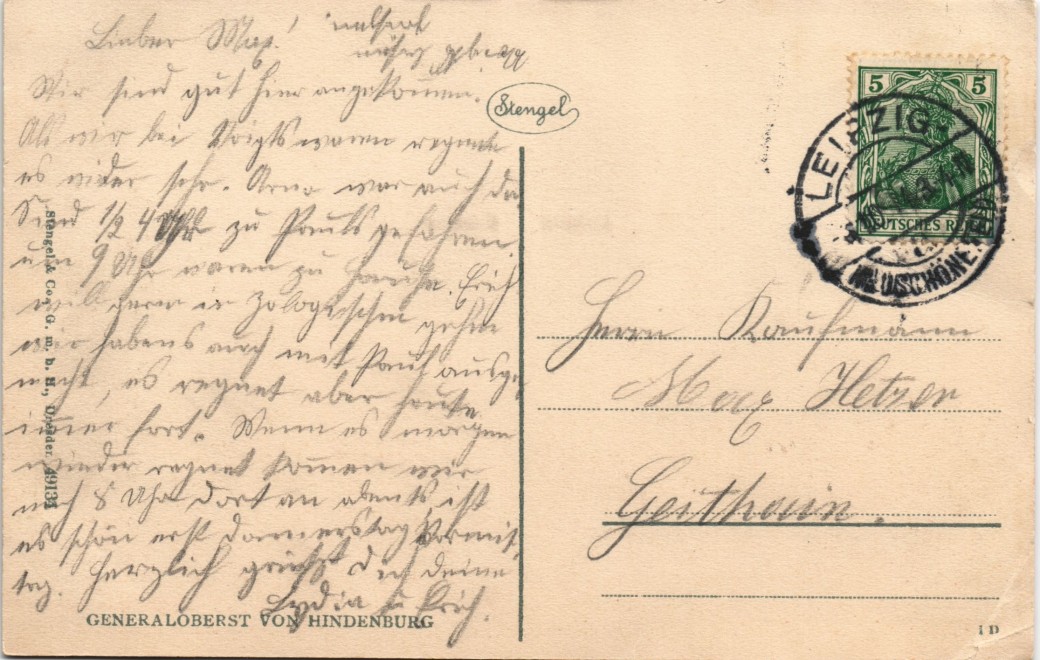 Lieber Max!
Wir sind gut hier angekommen.
Als wir bei Voigts waren regnete
es wider sehr. Arno war auch da
Sind 1/2 4 Uhr zu Pauls gefahren
um 9 Uhr waren zu Hause. Erich
will gern in Zologischen gehen
wir habens auch mit Paul ausge
macht, es regnet aber heute
immer fort. Wenn es morgen
wieder regnet kommen wir
noch 8 Uhr dort an abents, ist
es schön erst Donnerstag Vormit
tag. Herzlich grüßt Dich deine
Lydia u Erich.
Stengel
Stengel & Co., G. m. b. H., Dresden 49134
GENERALOBERST VON HINDENBURG
5 5
DEUTSCHES REICH
LEIPZIG-
NEUSCHÖNEFELD
Herrn Kaufmann
Max Hetzer
Geithain.
1 D